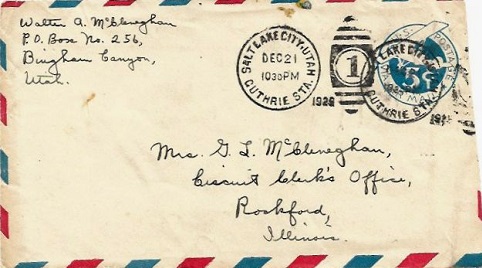 Walter A. McCleneghan
P.O. Box No. 256,
Bingham Canyon,
Utah.
SALT LAKE CITY, UTAH
DEC 21
1030 PM
1928
GUTHRIE STA.
1
SALT LAKE CITY,
GUTHRIE STA.
U.S. POSTAGE
5¢
Mrs. G. L. McCleneghan,
Circuit Clerk's Office,
Rockford,
Illinois.